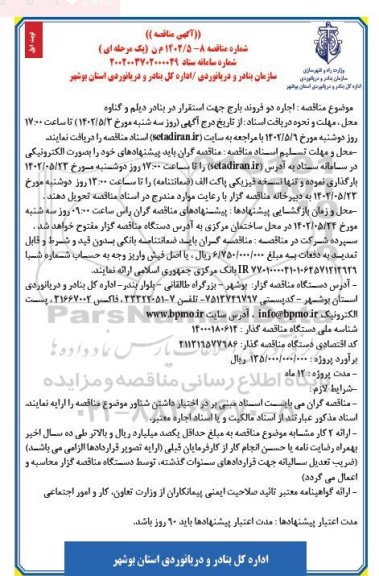 نوبت اول
((آگهی مناقصه))
شماره مناقصه ۸-۱۴۰۲/۵ م ن (یک مرحله ای)
شماره سامانه ستاد ۲۰۰۲۰۰۳۷۰۲۰۰۰۰۲۹
سازمان بنادر و دریانوردی /اداره کل بنادر و دریانوردی استان بوشهر
وزارت راه و شهرسازی
سازمان بنادر و دریانوردی
اداره کل بنادر و دریانوردی استان بوشهر
موضوع مناقصه : اجاره دو فروند بارج جهت استقرار در بنادر دیلم و گناوه
محل، مهلت و نحوه دریافت اسناد: از تاریخ درج آگهی (روز سه شنبه مورخ ۱۴۰۲/۵/۳) تا ساعت ۱۷:۰۰
روز دوشنبه مورخ ۱۴۰۲/۵/۹ با مراجعه به سایت (setadiran.ir) اسناد مناقصه را دریافت نمایند.
-محل و مهلت تسلیم اسناد مناقصه : مناقصه گران باید پیشنهادهای خود را بصورت الکترونیکی
در سامانه ستاد به آدرس (setadiran.ir) را تا ساعت ۱۷:۰۰ روز دوشنبه مورخ ۱۴۰۲/۰۵/۲۳
بارگذاری نموده و تنها نسخه فیزیکی پاکت الف (ضمانتنامه) را تا ساعت ۱۳:۰۰ روز دوشنبه مورخ
۱۴۰۲/۰۵/۲۳ به دبیرخانه مناقصه گزار با رعایت موارد مندرج در اسناد مناقصه تحویل دهند .
-محل و زمان بازگشایی پیشنهادها : پیشنهادهای مناقصه گران راس ساعت ۰۹:۰۰ روز سه شنبه
مورخ ۱۴۰۲/۰۵/۲۴ در محل ساختمان مرکزی به آدرس دستگاه مناقصه گزار مفتوح خواهد شد .
سپرده شرکت در مناقصه : مناقصه گران باید ضمانتنامه بانکی بدون قید و شرط و قابل
تمدید به دفعات به مبلغ ۶/۷۵۰/۰۰۰/۰۰۰ ریال ، یا اصل فیش واریز وجه به حساب شماره شبا
بانک مرکزی جمهوری اسلامی ارائه نمایند.
- آدرس دستگاه مناقصه گزار: بوشهر - بزرگراه طالقانی - بلوار بندر- اداره کل بنادر و دریانوردی
استان بوشهر - کدپستی ۷۵۱۳۷۴۹۷۱۷- تلفن ۷-۳۳۲۲۲۰۵۱ ، فاکس ۳۱۶۶۷۰۰۲ ، پست
الکترونیک info@bpmo.ir ، آدرس سایت www.bpmo.ir
شناسه ملی دستگاه مناقصه گذار : ۱۴۰۰۰۱۸۰۶۱۴
کد اقتصادی دستگاه مناقصه گذار: ۴۱۱۳۱۶۵۷۷۹۸۶
برآورد پروژه : ۱۳۵/۰۰۰/۰۰۰/۰۰۰ ریال
- مدت پروژه : ۱۲ ماه
-شرایط لازم :
- مناقصه گران می بایست اسناد مبنی بر در اختیار داشتن شناور موضوع مناقصه را ارایه نمایند.
اسناد مذکور عبارتند از اسناد مالکیت و یا اسناد اجاره معتبر.
- ارائه ۲ کار مشابه موضوع مناقصه به مبلغ حداقل یکصد میلیارد ریال و بالاتر طی ده سال اخیر
بهمراه رضایت نامه یا حسن انجام کار از کارفرمایان قبلی (ارایه تصویر قراردادها الزامی می باشد)
(ضریب تعدیل سالیانه جهت قراردادهای سنوات گذشته، توسط دستگاه مناقصه گزار محاسبه و
اعمال می گردد)
- ارائه گواهینامه معتبر تائید صلاحیت ایمنی پیمانکاران از وزارت تعاون، کار و امور اجتماعی
مدت اعتبار پیشنهادها : مدت اعتبار پیشنهادها باید ۹۰ روز باشد.
اداره کل بنادر و دریانوردی استان بوشهر